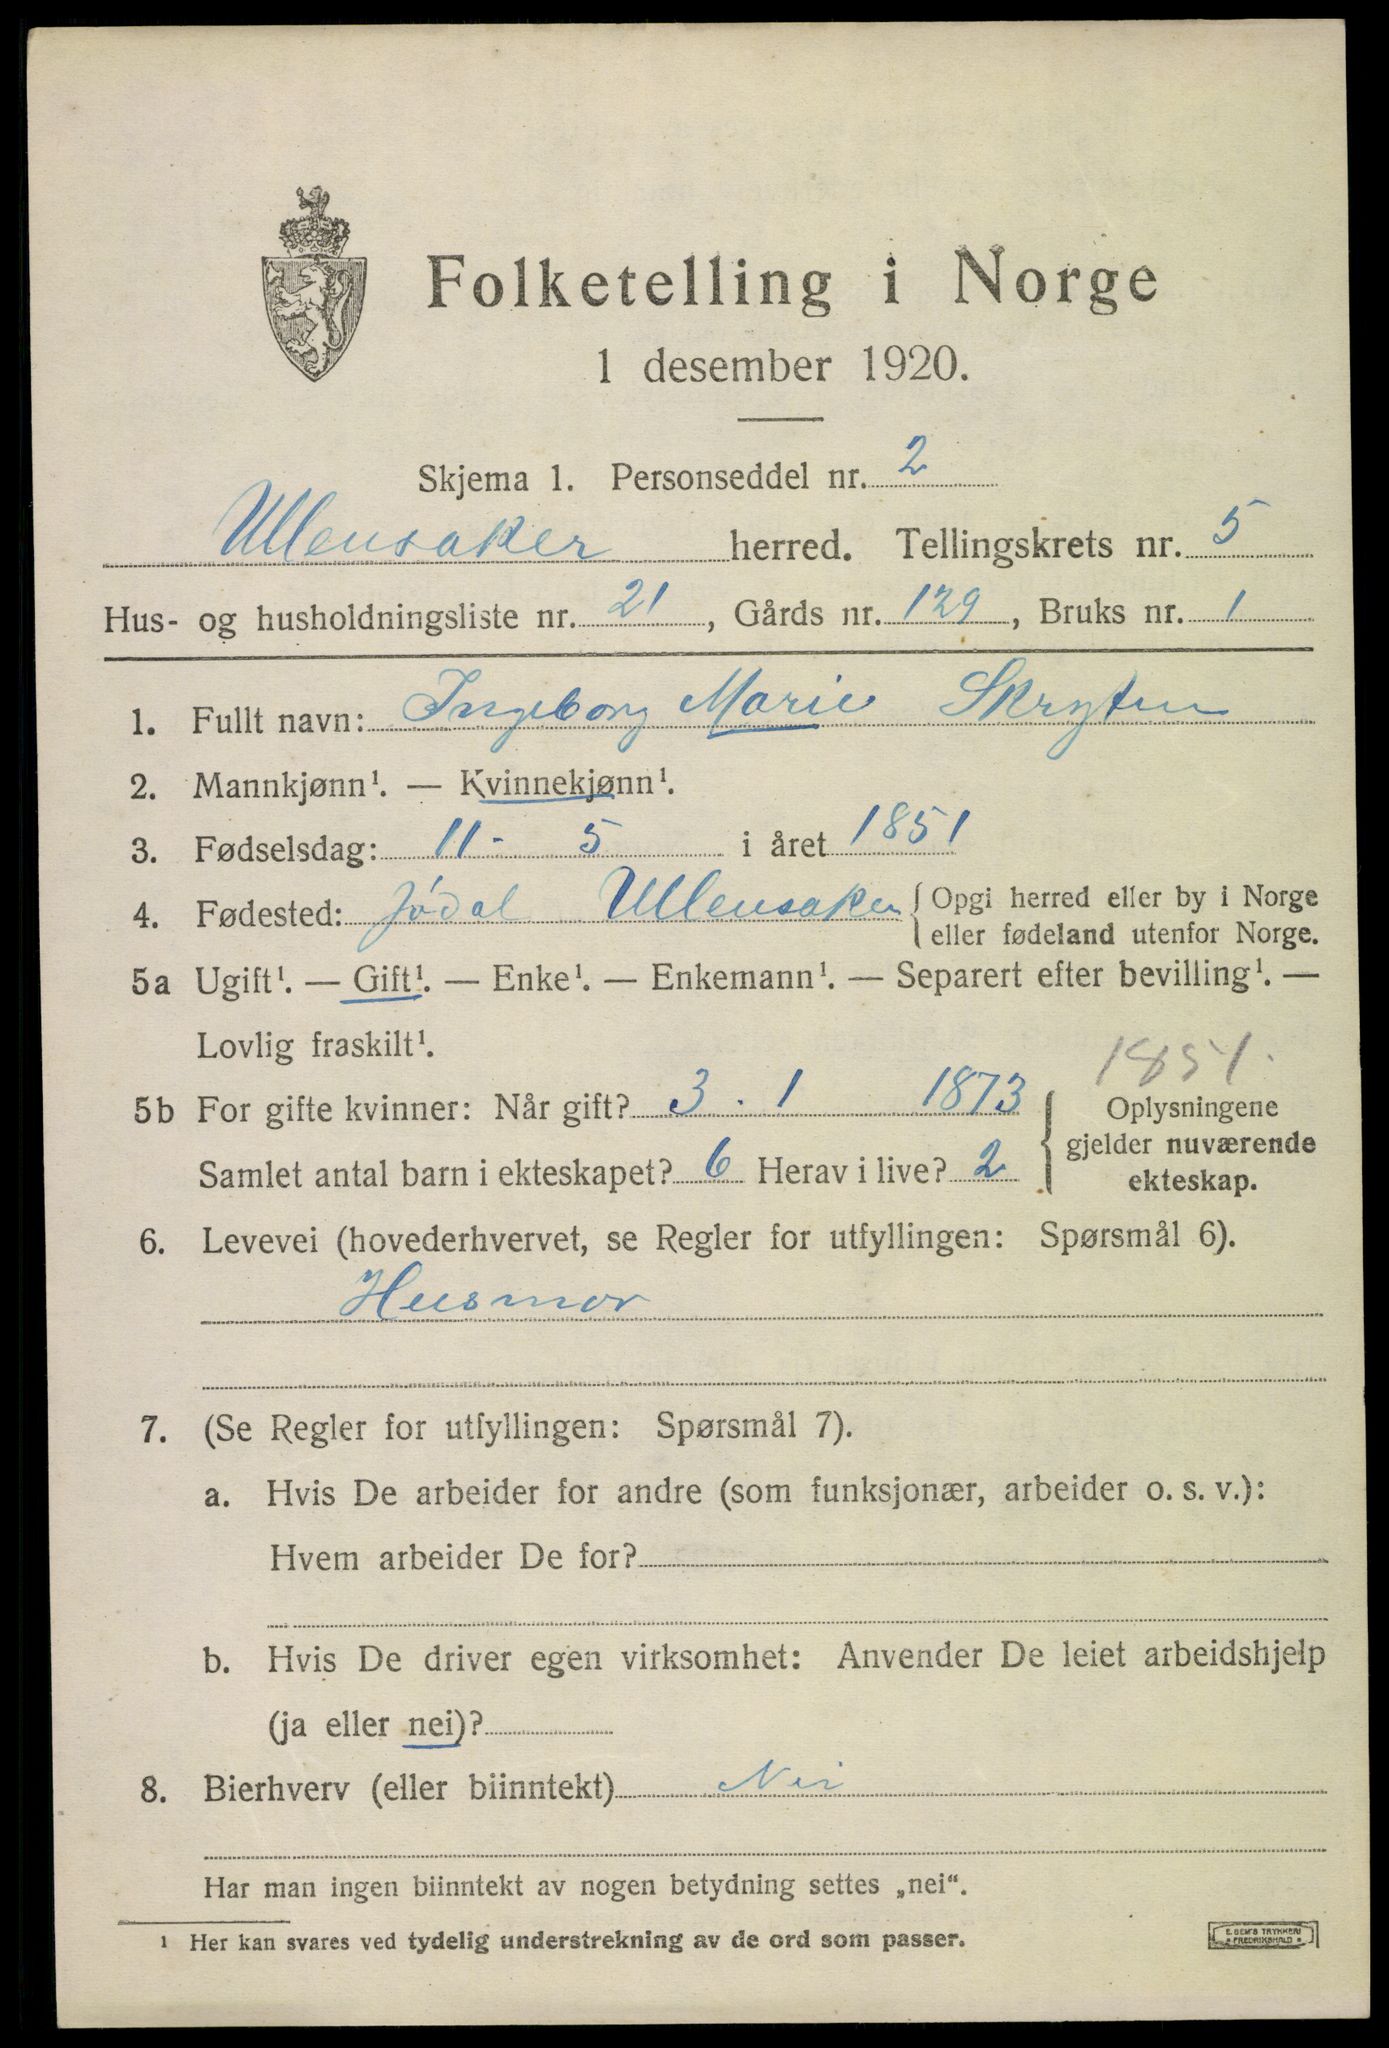 Folketelling i Norge
1 desember 1920.
Skjema 1. Personseddel nr. 2
Ullensaker herred. Tellingskrets nr. 5
Hus- og husholdningsliste nr. 21, Gårds nr. 129, Bruks nr. 1
1. Fullt navn: Ingeborg Marie Skryten
2. Mannkjønn¹. — Kvinnekjønn¹.
3. Fødselsdag: 11 - 5 i året 1851
4. Fødested: Jødal Ullensaker { Opgi herred eller by i Norge
eller fødeland utenfor Norge.
5a Ugift¹. — Gift¹. — Enke¹. — Enkemann¹. — Separert efter bevilling¹. —
Lovlig fraskilt¹.
1851.
5b For gifte kvinner: Når gift? 3. 1 1873
Samlet antal barn i ekteskapet? 6 Herav i live? 2
Oplysningene
gjelder nuværende
ekteskap.
6. Levevei (hovederhvervet, se Regler for utfyllingen: Spørsmål 6).
Husmor
7. (Se Regler for utfyllingen: Spørsmål 7).
a. Hvis De arbeider for andre (som funksjonær, arbeider o. s. v.):
Hvem arbeider De for?
b. Hvis De driver egen virksomhet: Anvender De leiet arbeidshjelp
(ja eller nei)?
8. Bierhverv (eller biinntekt) Nei
Har man ingen biinntekt av nogen betydning settes „nei“.
¹ Her kan svares ved tydelig understrekning av de ord som passer.
E. SEM'S TRYKKERI
FREDRIKSHALD